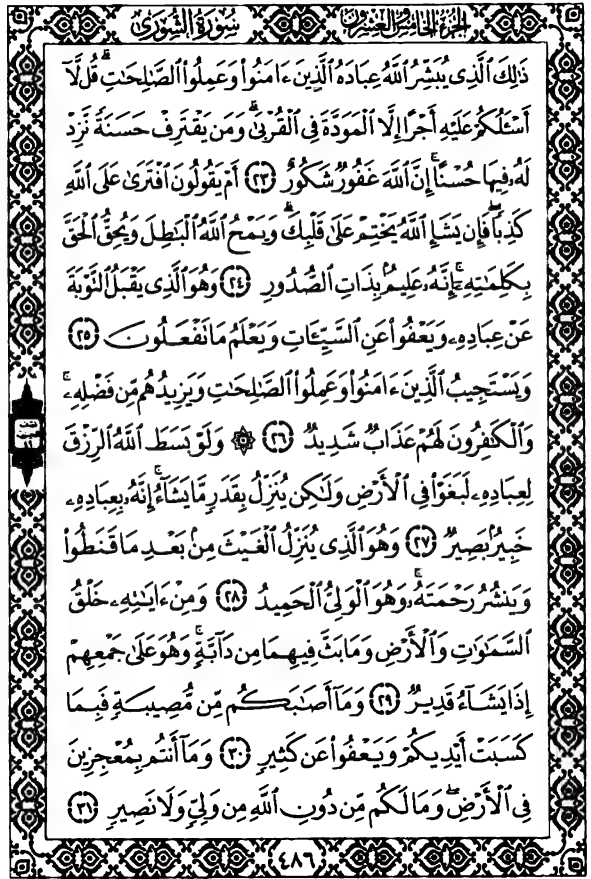 الجزء الخامس والعشرون
سورة الشورى
ذَٰلِكَ ٱلَّذِى يُبَشِّرُ ٱللَّهُ عِبَادَهُ ٱلَّذِينَ ءَامَنُوا۟ وَعَمِلُوا۟ ٱلصَّٰلِحَٰتِ ۗ قُل لَّآ
أَسْـَٔلُكُمْ عَلَيْهِ أَجْرًا إِلَّا ٱلْمَوَدَّةَ فِى ٱلْقُرْبَىٰ ۗ وَمَن يَقْتَرِفْ حَسَنَةً نَّزِدْ
لَهُۥ فِيهَا حُسْنًا ۚ إِنَّ ٱللَّهَ غَفُورٌ شَكُورٌ ٢٣ أَمْ يَقُولُونَ ٱفْتَرَىٰ عَلَى ٱللَّهِ
كَذِبًا ۖ فَإِن يَشَإِ ٱللَّهُ يَخْتِمْ عَلَىٰ قَلْبِكَ ۗ وَيَمْحُ ٱللَّهُ ٱلْبَٰطِلَ وَيُحِقُّ ٱلْحَقَّ
بِكَلِمَٰتِهِۦٓ ۚ إِنَّهُۥ عَلِيمٌۢ بِذَاتِ ٱلصُّدُورِ ٢٤ وَهُوَ ٱلَّذِى يَقْبَلُ ٱلتَّوْبَةَ
عَنْ عِبَادِهِۦ وَيَعْفُوا۟ عَنِ ٱلسَّيِّـَٔاتِ وَيَعْلَمُ مَا تَفْعَلُونَ ٢٥
وَيَسْتَجِيبُ ٱلَّذِينَ ءَامَنُوا۟ وَعَمِلُوا۟ ٱلصَّٰلِحَٰتِ وَيَزِيدُهُم مِّن فَضْلِهِۦ ۚ
وَٱلْكَٰفِرُونَ لَهُمْ عَذَابٌ شَدِيدٌ ٢٦ ۞ وَلَوْ بَسَطَ ٱللَّهُ ٱلرِّزْقَ
لِعِبَادِهِۦ لَبَغَوْا۟ فِى ٱلْأَرْضِ وَلَٰكِن يُنَزِّلُ بِقَدَرٍ مَّا يَشَآءُ ۚ إِنَّهُۥ بِعِبَادِهِۦ
خَبِيرٌۢ بَصِيرٌ ٢٧ وَهُوَ ٱلَّذِى يُنَزِّلُ ٱلْغَيْثَ مِنۢ بَعْدِ مَا قَنَطُوا۟
وَيَنشُرُ رَحْمَتَهُۥ ۚ وَهُوَ ٱلْوَلِىُّ ٱلْحَمِيدُ ٢٨ وَمِنْ ءَايَٰتِهِۦ خَلْقُ
ٱلسَّمَٰوَٰتِ وَٱلْأَرْضِ وَمَا بَثَّ فِيهِمَا مِن دَآبَّةٍ ۚ وَهُوَ عَلَىٰ جَمْعِهِمْ
إِذَا يَشَآءُ قَدِيرٌ ٢٩ وَمَآ أَصَٰبَكُم مِّن مُّصِيبَةٍ فَبِمَا
كَسَبَتْ أَيْدِيكُمْ وَيَعْفُوا۟ عَن كَثِيرٍ ٣٠ وَمَآ أَنتُم بِمُعْجِزِينَ
فِى ٱلْأَرْضِ ۖ وَمَا لَكُم مِّن دُونِ ٱللَّهِ مِن وَلِىٍّ وَلَا نَصِيرٍ ٣١
٤٨٦